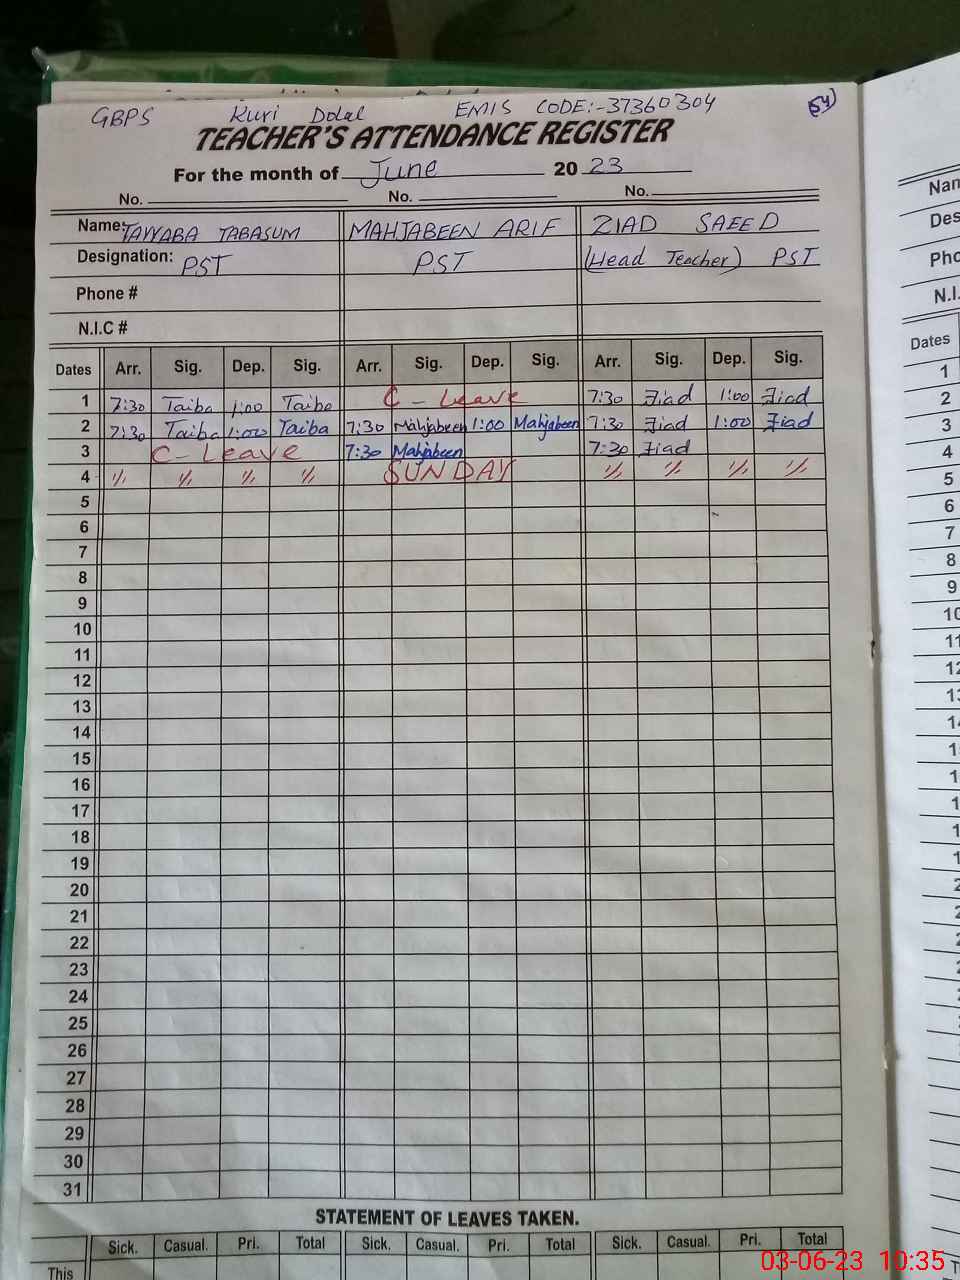 GBPS Kuri Dolal EMIS CODE:-37360304 54
TEACHER'S ATTENDANCE REGISTER
For the month of June 2023
No. No. No.
Name: TAYYABA TABASUM MAHJABEEN ARIF ZIAD SAEED
Designation: PST PST (Head Teacher) PST
Phone #
N.I.C #
Dates Arr. Sig. Dep. Sig. Arr. Sig. Dep. Sig. Arr. Sig. Dep. Sig.
1 7:30 Taiba 1:00 Taiba C - Leave 7:30 Ziad 1:00 Ziad
2 7:30 Taiba 1:00 Taiba 7:30 Mahjabeen 1:00 Mahjabeen 7:30 Ziad 1:00 Ziad
3 C - Leave 7:30 Mahjabeen 7:30 Ziad
4 SUNDAY
5
6
7
8
9
10
11
12
13
14
15
16
17
18
19
20
21
22
23
24
25
26
27
28
29
30
31
STATEMENT OF LEAVES TAKEN.
Sick. Casual. Pri. Total Sick. Casual. Pri. Total Sick. Casual. Pri. Total
This
03-06-23 10:35
Dates
1
2
3
4
5
6
7
8
9